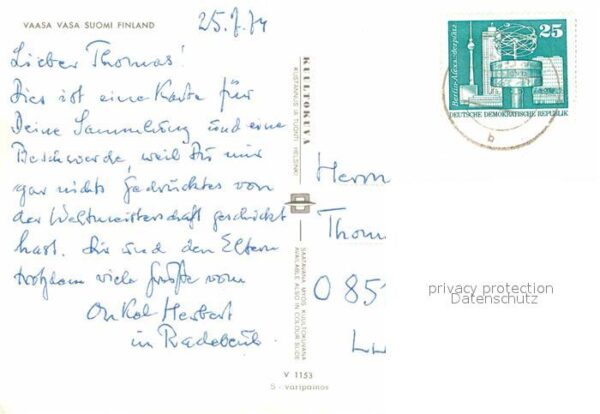 VAASA VASA SUOMI FINLAND
25.7.74
Lieber Thomas!
Dies ist eine Karte für
Deine Sammlung und eine
Beschwerde, weil Du mir
gar nichts Gedrucktes von
der Weltmeisterschaft geschickt
hast. Dir und den Eltern
trotzdem viele Grüße vom
Onkel Herbert
in Radebeul.
KUULTOKUVA
KUSTANNUS JA TUONTI HELSINKI
SAATAVANA MYÖS KUULTOKUVANA
AVAILABLE ALSO IN COLOUR SLIDE
V 1153
S - varipainos
Berlin-Alexanderplatz
25
DEUTSCHE DEMOKRATISCHE REPUBLIK
b
Herrn
Thom
privacy protection
Datenschutz
O 85